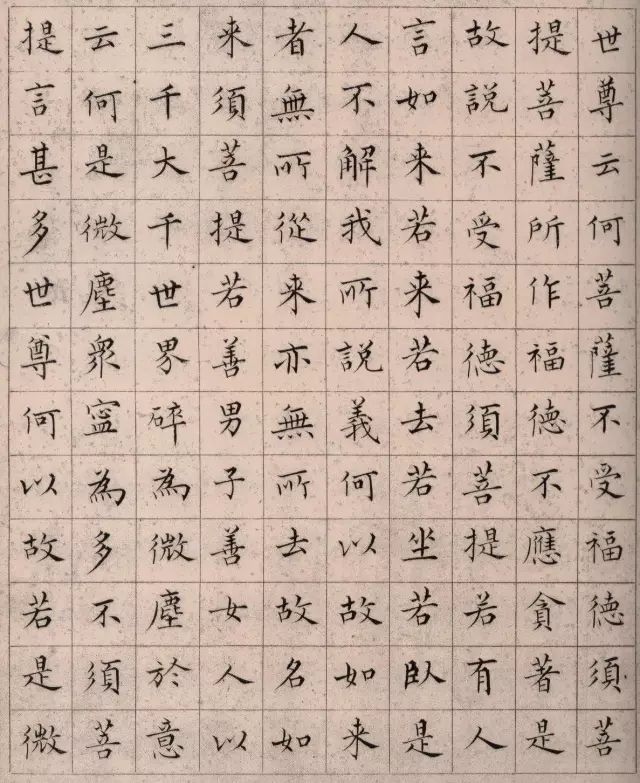 世尊云何菩薩不受福德須菩
提菩薩所作福德不應貪著是
故說不受福德須菩提若有人
言如来若来若去若坐若臥是
人不解我所說義何以故如来
者無所從来亦無所去故名如
来須菩提若善男子善女人以
三千大千世界碎為微塵於意
云何是微塵衆寧為多不須菩
提言甚多世尊何以故若是微